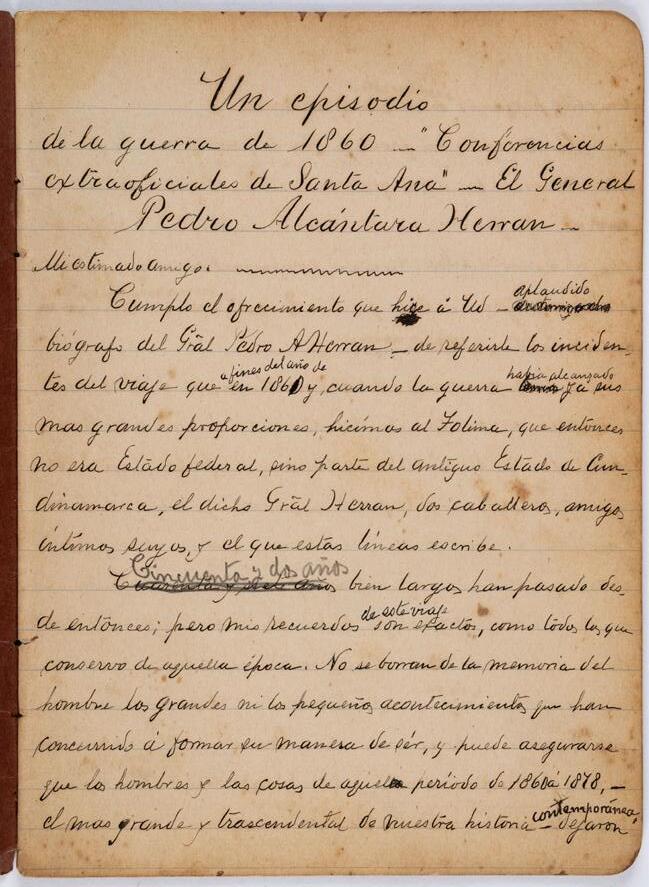 Un episodio
de la guerra de 1860 — "Conferencias
extraoficiales de Santa Ana" — El General
Pedro Alcántara Herran —
Mi estimado amigo:
Cumplo el ofrecimiento que hice á Ud — aplaudido
biógrafo del Grãl Pedro A Herran — de referirle los inciden-
tes del viaje que a fines del año de en 1860 y, cuando la guerra habia alcanzado ya sus
mas grandes proporciones, hicimos al Tolima, que entonces
no era Estado federal, sino parte del antiguo Estado de Cun-
dinamarca, el dicho Grãl Herran, dos caballeros, amigos
íntimos suyos, y el que estas líneas escribe.
Cincuenta y dos años bien largos han pasado des-
de entonces; pero mis recuerdos de este viaje son exactos, como todos los que
conservo de aquella época. No se borran de la memoria del
hombre los grandes ni los pequeños acontecimientos que han
concurrido á formar su manera de sér, y puede asegurarse
que los hombres y las cosas de aquel período de 1860 á 1878, —
el mas grande y trascendental de nuestra historia contemporánea, — dejaron